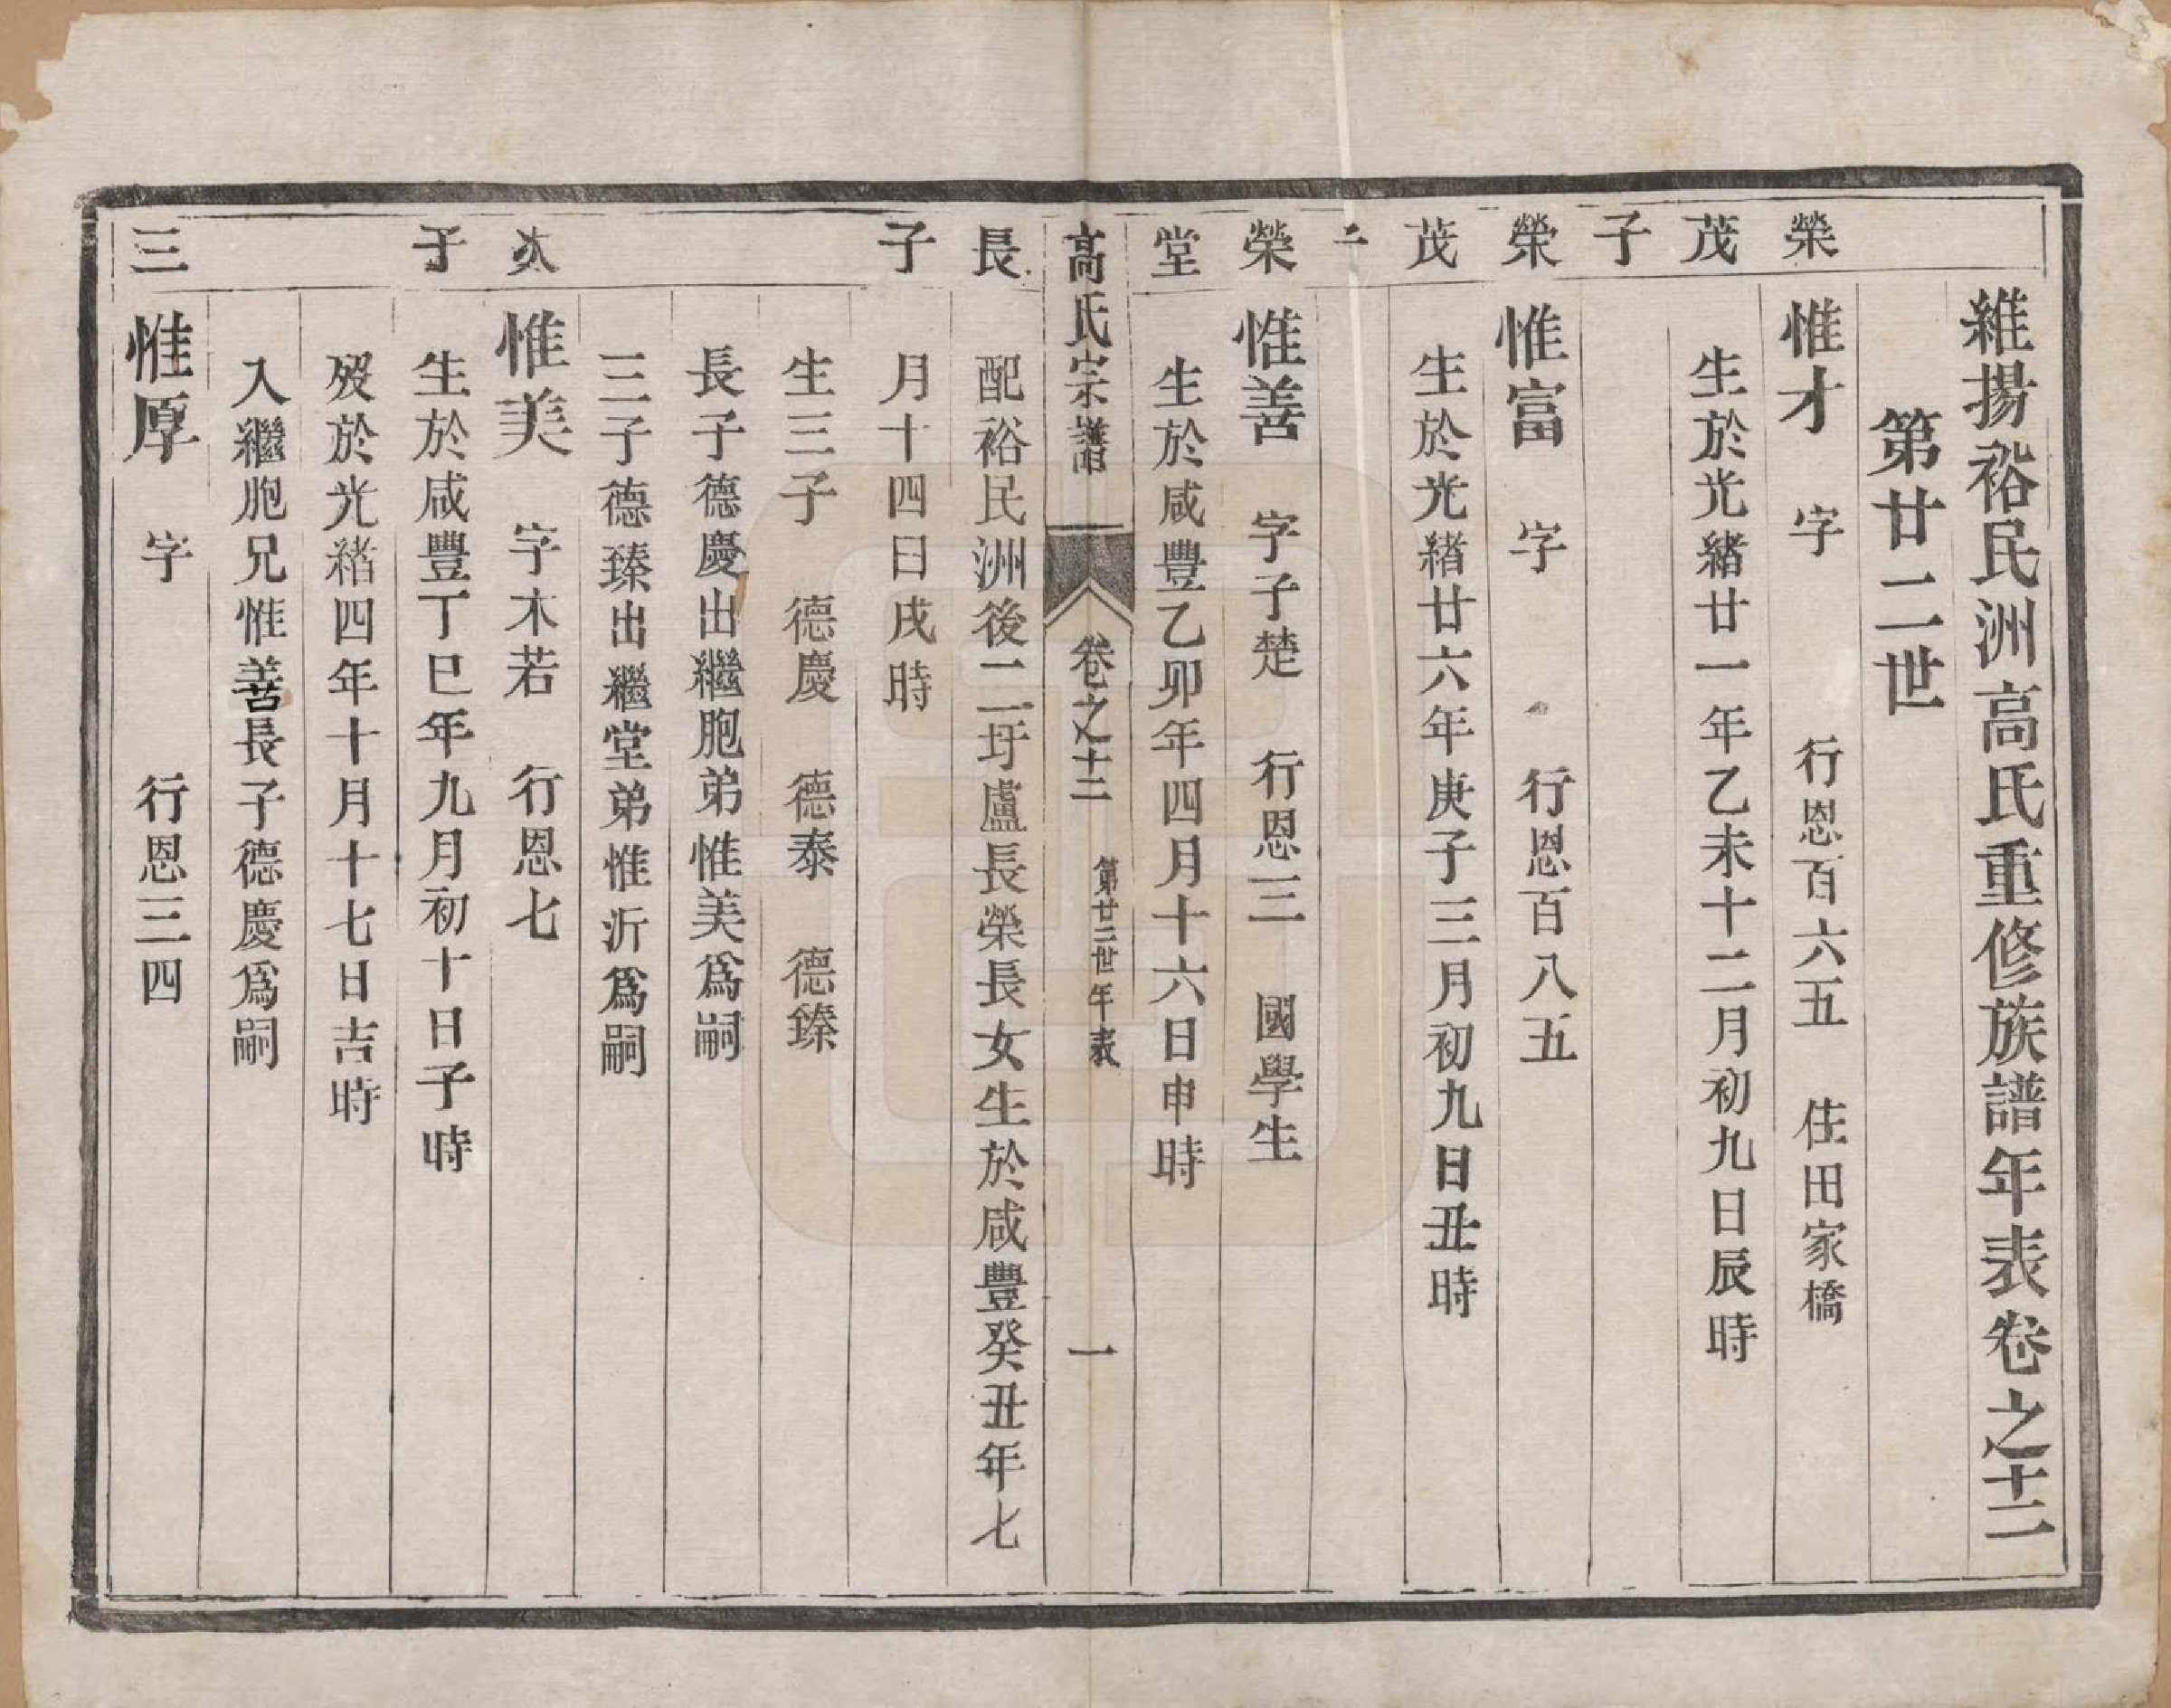 維揚裕民洲高氏重修族譜年表卷之十二
第廿二世
榮 惟才 字 行恩百六五 住田家橋
茂 生於光緒廿一年乙未十二月初九日辰時
子
榮 惟富 字 行恩百八五
茂 生於光緒廿六年庚子三月初九日丑時
二
榮 惟善 字子楚 行恩三 國學生
堂 生於咸豐乙卯年四月十六日申時
高氏宗譜 卷之十二 第廿二世年表 一
長 配裕民洲後二圩盧長榮長女生於咸豐癸丑年七
子 月十四日戌時
生三子 德慶 德泰 德臻
長子德慶出繼胞弟惟美爲嗣
三子德臻出繼堂弟惟沂爲嗣
次 惟美 字木若 行恩七
子 生於咸豐丁巳年九月初十日子時
歿於光緒四年十月十七日吉時
入繼胞兄惟善長子德慶爲嗣
三 惟厚 字 行恩三四